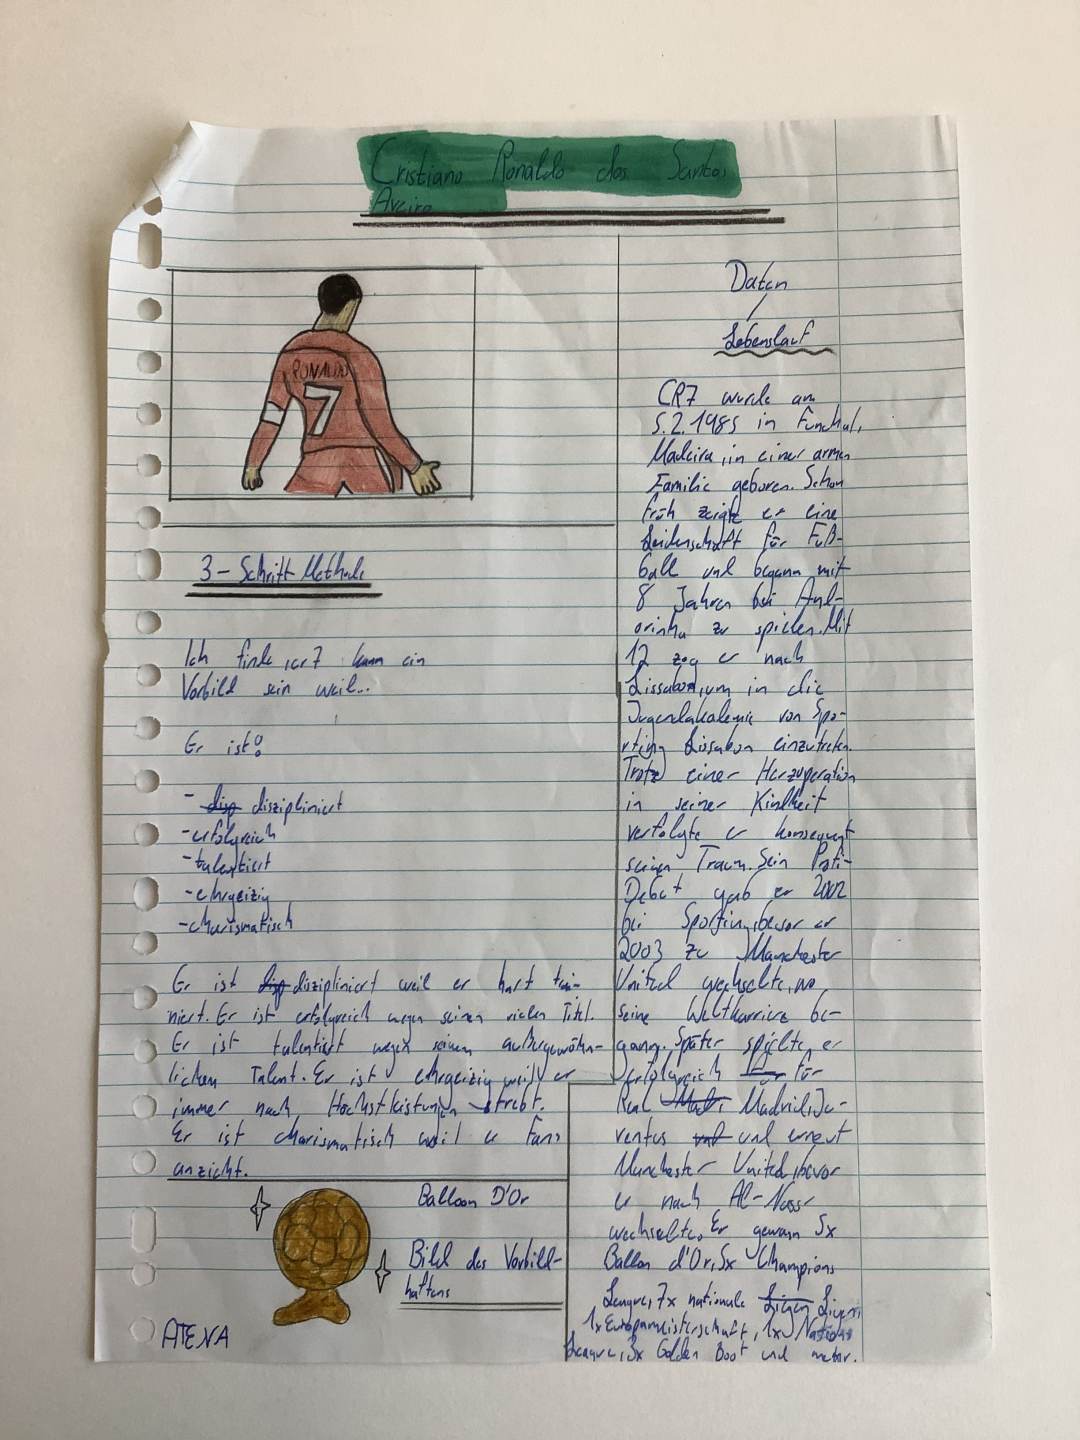 Cristiano Ronaldo dos Santos
Aveiro
RONALDO
7
3-Schritt Methode
Ich finde, cr7 kann ein
Vorbild sein weil...
Er ist:
- disp diszipliniert
-erfolgreich
-talentiert
-ehrgeizig
-charismatisch
Er ist disp diszipliniert weil er hart trai-
niert. Er ist erfolgreich wegen seinen vielen Titel.
Er ist talentiert wegen seinem außergewöhn-
lichen Talent. Er ist ehrgeizig weil er
immer nach Höchstleistungen strebt.
Er ist charismatisch weil er Fans
anzieht.
Balloon D'Or
Bild des Vorbild-
haftens
ATENA
Daten
Lebenslauf
CR7 wurde am
5.2.1985 in Funchal,
Madeira, in einer armen
Familie geboren. Schon
früh zeigte er eine
Leidenschaft für Fuß-
ball und begann mit
8 Jahren bei And-
orinha zu spielen. Mit
12 zog er nach
Lissabon, um in die
Jugendakademie von Spo-
rting Lissabon einzutreten.
Trotz einer Herzoperation
in seiner Kindheit
verfolgte er konsequent
seinen Traum. Sein Profi-
Debüt gab er 2002
bei Sporting, bevor er
2003 zu Manchester
United wechselte, wo
seine Weltkarriere be-
gann. Später spielte er
erfolgreich für
Real Madrid, Ju-
ventus und und erneut
Manchester United, bevor
er nach Al-Nassr
wechselte. Er gewann 5x
Ballon d'Or, 5x Champions
League, 7x nationale Ligen Ligen,
1x Europameisterschaft, 1x Nations
League, 3x Golden Boot und mehr.